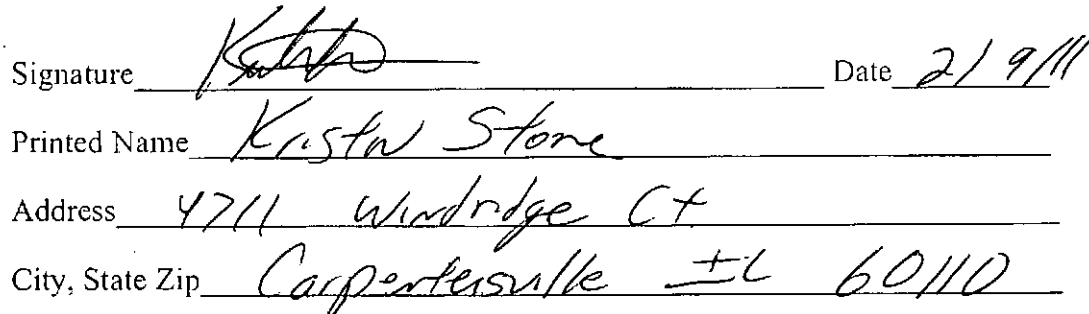 Signature Date 2/9/11
Printed Name Kristin Stone
Address 4711 Windridge Ct
City, State Zip Carpentersville IL 60110